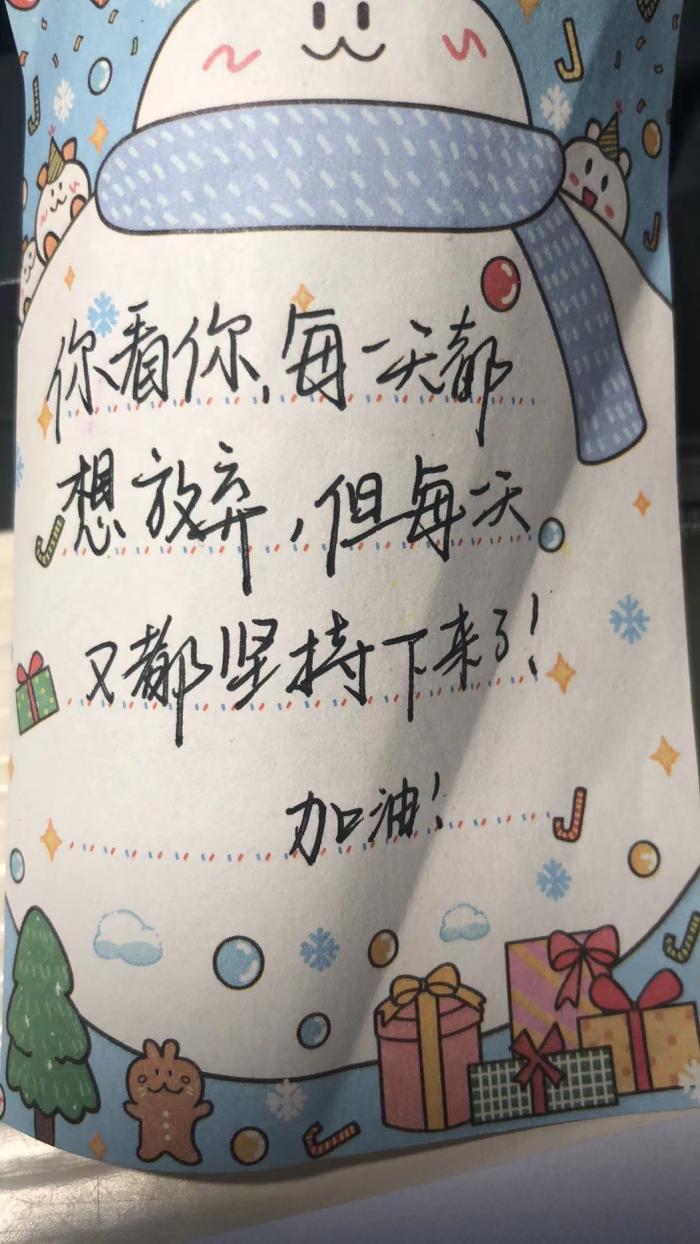 你看你,每一天都
想放弃,但每一天
又都坚持下来了!
加油!